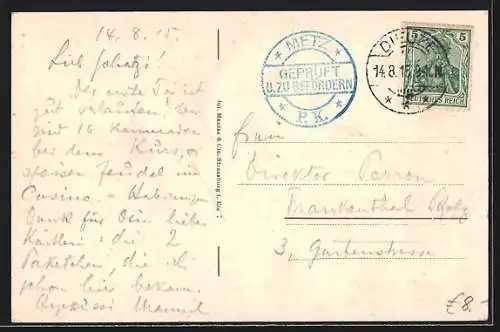 14.8.15.
Lieb Schatzi!
Der erste Tag ist
gut verlaufen! Wir
sind 16 Kameraden
bei dem Kurs,
speisen feudal im
Casino.
Dank für Dein liebes
Kärtlein: die 2
Paketchen, die ich
schon hier bekam.
METZ
GEPRÜFT
U. ZU BEFÖRDERN
P.K.
DIEUZE
14.8.15
5 5
DEUTSCHES REICH
Jul. Manias & Cie, Strassburg i. Els.
Herrn
Direktor Perron
Frankenthal Pfalz
3, Gartenstrasse
£8.-